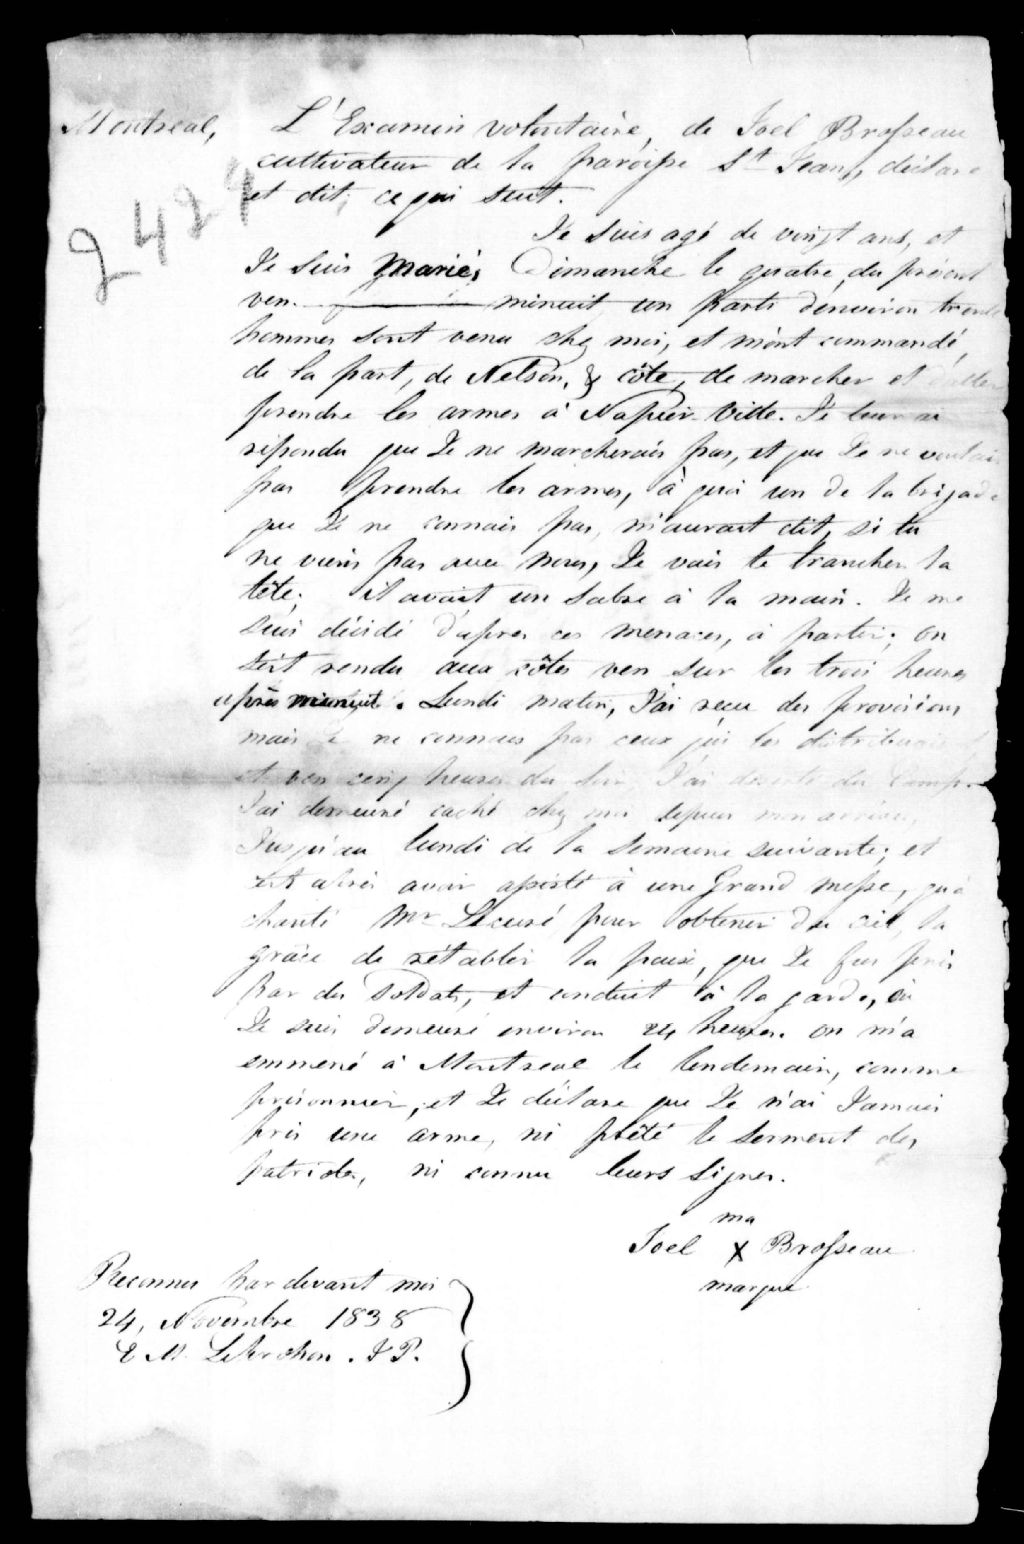 Montreal, L'Examen volontaire, de Joel Brosseau
cultivateur de la paroisse St Jean, déclare
et dit, ce qui suit.
2424
Je suis agé de vingt ans, et
Je suis marié, Dimanche le quatre du présent
ven. minuit un parti d'environ trente
hommes sont venu chez moi, et m'ont commandé,
de la part, de Nelson, & côte, de marcher et d'aller
prendre les armes à Napier-ville. Je leur ai
répondu que Je ne marcherais pas, et que Je ne voulais
pas prendre les armes, à quoi un de la brigade
que Je ne connais pas, m'aurait dit, si tu
ne viens pas avec nous, Je vais te trancher la
tête; il avait un sabre à la main. Je me
suis décidé d'après ces menaces, à partir; on
s'est rendu aux côtes ven sur les trois heures
après minuit. Lundi matin, J'ai recu des provisions
mais Je ne connais pas ceux qui les distribuais
et ven cinq heures du soir, J'ai déserté du Camp.
J'ai demeuré caché chez moi depuis mon arrivée,
Jusqu'au lundi de la semaine suivante; et
c'est après avoir assisté à une Grand messe, qu'a
chanté Mr Lecuré pour obtenir du ciel, la
grâce de rétablir la paix, que Je fus pris
par des soldats, et conduit à la garde, où
Je suis demeuré environ 24 heures. on m'a
emmené à Montreal le lendemain, comme
prisonnier, et Je déclare que Je n'ai Jamais
pris une arme, ni prêté le serment des
patriotes, ni connu leurs signes.
ma
Joel X Brosseau
marque
Reconnu par devant moi
24, Novembre 1838
E M. Leprohon. J P.